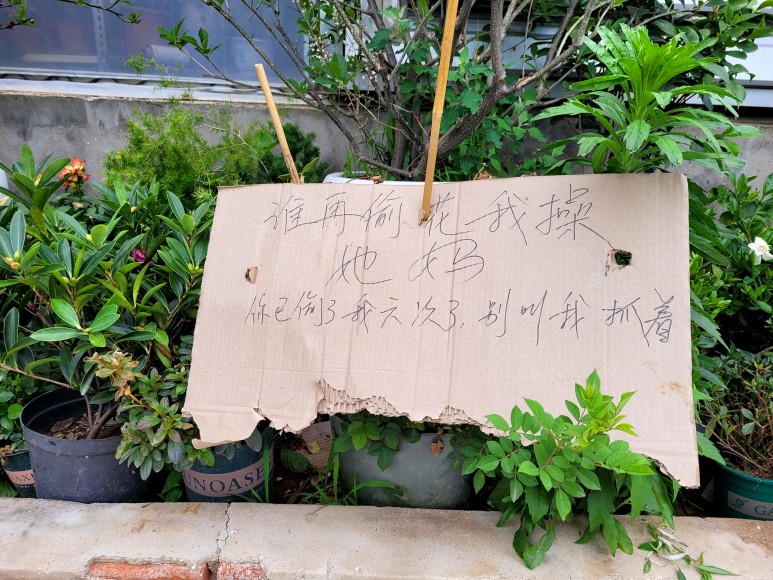 谁再偷花我操
她妈
你已偷了我六次了,别叫我抓着
UNOASE